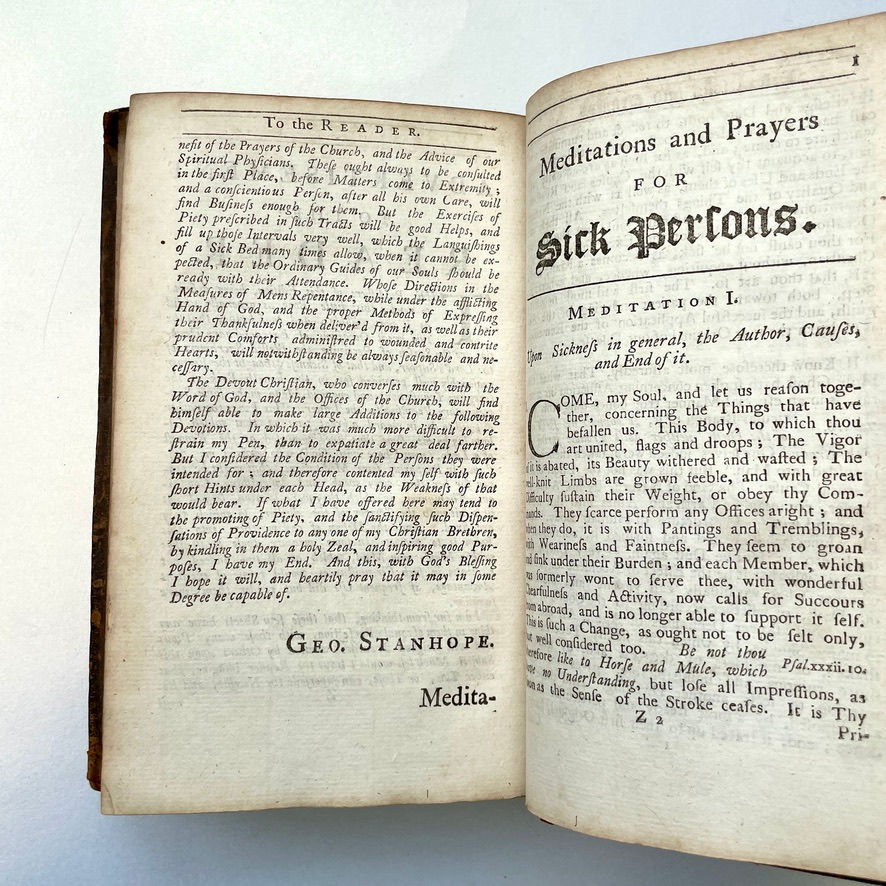 To the READER.
nefit of the Prayers of the Church, and the Advice of our
Spiritual Phyſicians. Theſe ought always to be conſulted
in the firſt Place, before Matters come to Extremity ;
and a conſcientious Perſon, after all his own Care, will
find Buſineſs enough for them. But the Exerciſes of
Piety preſcribed in ſuch Tracts will be good Helps, and
fill up thoſe Intervals very well, which the Languiſhings
of a Sick Bed many times allow, when it cannot be ex-
pected, that the Ordinary Guides of our Souls ſhould be
ready with their Attendance. Whoſe Directions in the
Meaſures of Mens Repentance, while under the afflicting
Hand of God, and the proper Methods of Expreſſing
their Thankfulneſs when deliver'd from it, as well as their
prudent Comforts adminiſtred to wounded and contrite
Hearts, will notwithſtanding be always ſeaſonable and ne-
ceſſary.
The Devout Chriſtian, who converſes much with the
Word of God, and the Offices of the Church, will find
himſelf able to make large Additions to the following
Devotions. In which it was much more difficult to re-
ſtrain my Pen, than to expatiate a great deal farther.
But I conſidered the Condition of the Perſons they were
intended for ; and therefore contented my ſelf with ſuch
ſhort Hints under each Head, as the Weakneſs of that
would bear. If what I have offered here may tend to
the promoting of Piety, and the ſanctifying ſuch Diſpen-
ſations of Providence to any one of my Chriſtian Brethren,
by kindling in them a holy Zeal, and inſpiring good Pur-
poſes, I have my End. And this, with God's Bleſſing
I hope it will, and heartily pray that it may in ſome
Degree be capable of.
GEO. STANHOPE.
Medita-
1
Meditations and Prayers
FOR
Sick Perſons.
MEDITATION I.
Upon Sickneſs in general, the Author, Cauſes,
and End of it.
COME, my Soul, and let us reaſon toge-
ther, concerning the Things that have
befallen us. This Body, to which thou
art united, flags and droops ; The Vigor
of it is abated, its Beauty withered and waſted ; The
well-knit Limbs are grown feeble, and with great
Difficulty ſuſtain their Weight, or obey thy Com-
mands. They ſcarce perform any Offices aright ; and
when they do, it is with Pantings and Tremblings,
with Wearineſs and Faintneſs. They ſeem to groan
and ſink under their Burden ; and each Member, which
was formerly wont to ſerve thee, with wonderful
Chearfulneſs and Activity, now calls for Succours
from abroad, and is no longer able to ſupport it ſelf.
This is ſuch a Change, as ought not to be felt only,
but well conſidered too. Be not thou
therefore like to Horſe and Mule, which Pſal.xxxii.10.
have no Underſtanding, but loſe all Impreſſions, as
ſoon as the Senſe of the Stroke ceaſes. It is Thy
Z 2
Pri-